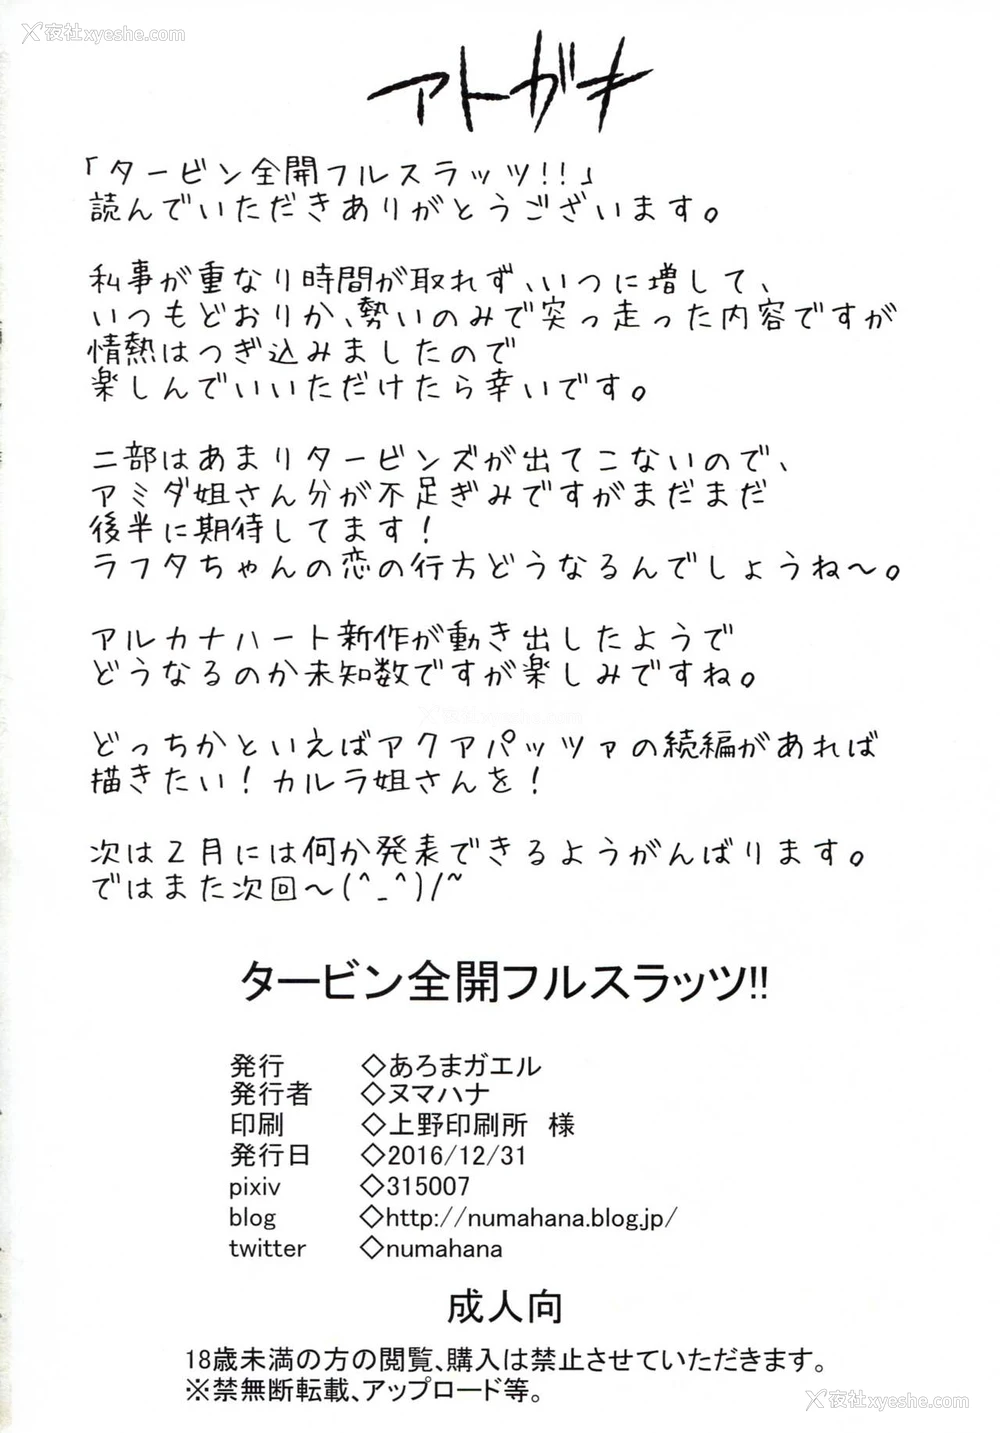 夜社xyeshe.com
アトガキ
「タービン全開フルスラッツ!!」
読んでいただきありがとうございます。
私事が重なり時間が取れず、いつに増して、
いつもどおりか、勢いのみで突っ走った内容ですが
情熱はつぎ込みましたので
楽しんでいいただけたら幸いです。
二部はあまりタービンズが出てこないので、
アミダ姐さん分が不足ぎみですがまだまだ
後半に期待してます!
ラフタちゃんの恋の行方どうなるんでしょうね〜。
アルカナハート新作が動き出したようで
どうなるのか未知数ですが楽しみですね。
夜社xyeshe.com
どっちかといえばアクアパッツァの続編があれば
描きたい!カルラ姐さんを!
次は2月には何か発表できるようがんばります。
ではまた次回〜(^_^)/~
タービン全開フルスラッツ!!
発行 ◇あろまガエル
発行者 ◇ヌマハナ
印刷 ◇上野印刷所 様
発行日 ◇2016/12/31
pixiv ◇315007
blog ◇http://numahana.blog.jp/
twitter ◇numahana
成人向
18歳未満の方の閲覧、購入は禁止させていただきます。
※禁無断転載、アップロード等。
夜社xyeshe.com